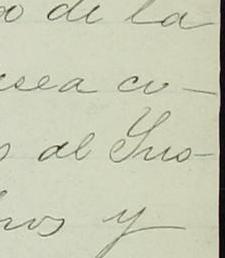 o de la
sea co-
s al Ins-
ros y